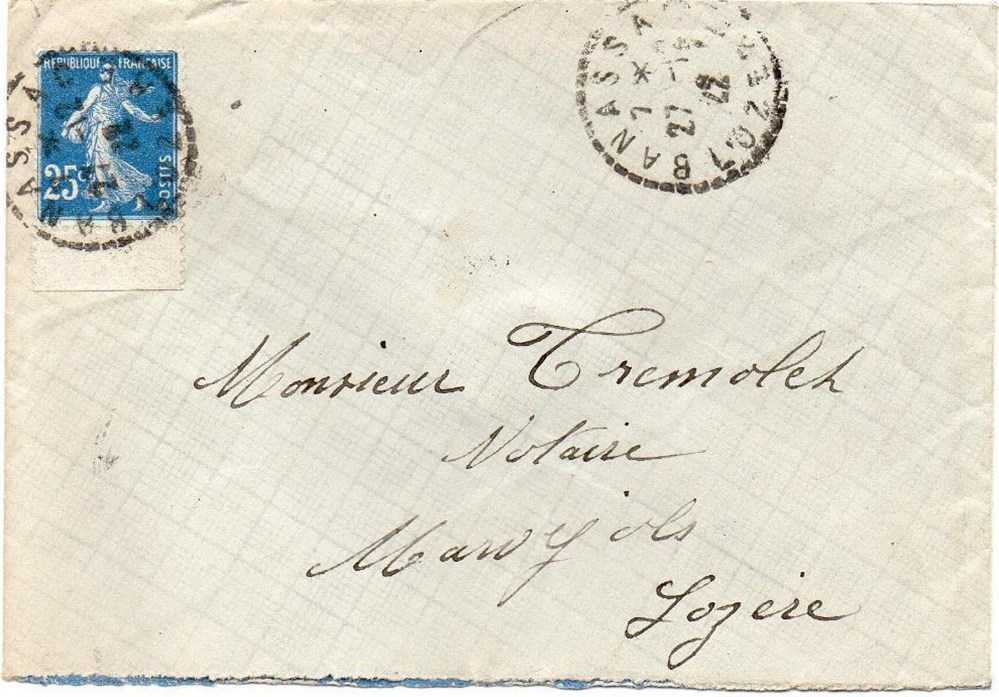 RÉPUBLIQUE FRANÇAISE
25c
POSTES
BANASSA
7 *
27 -12
22
LOZÈRE
Monsieur Tremolet
Notaire
Marvejols
Lozère